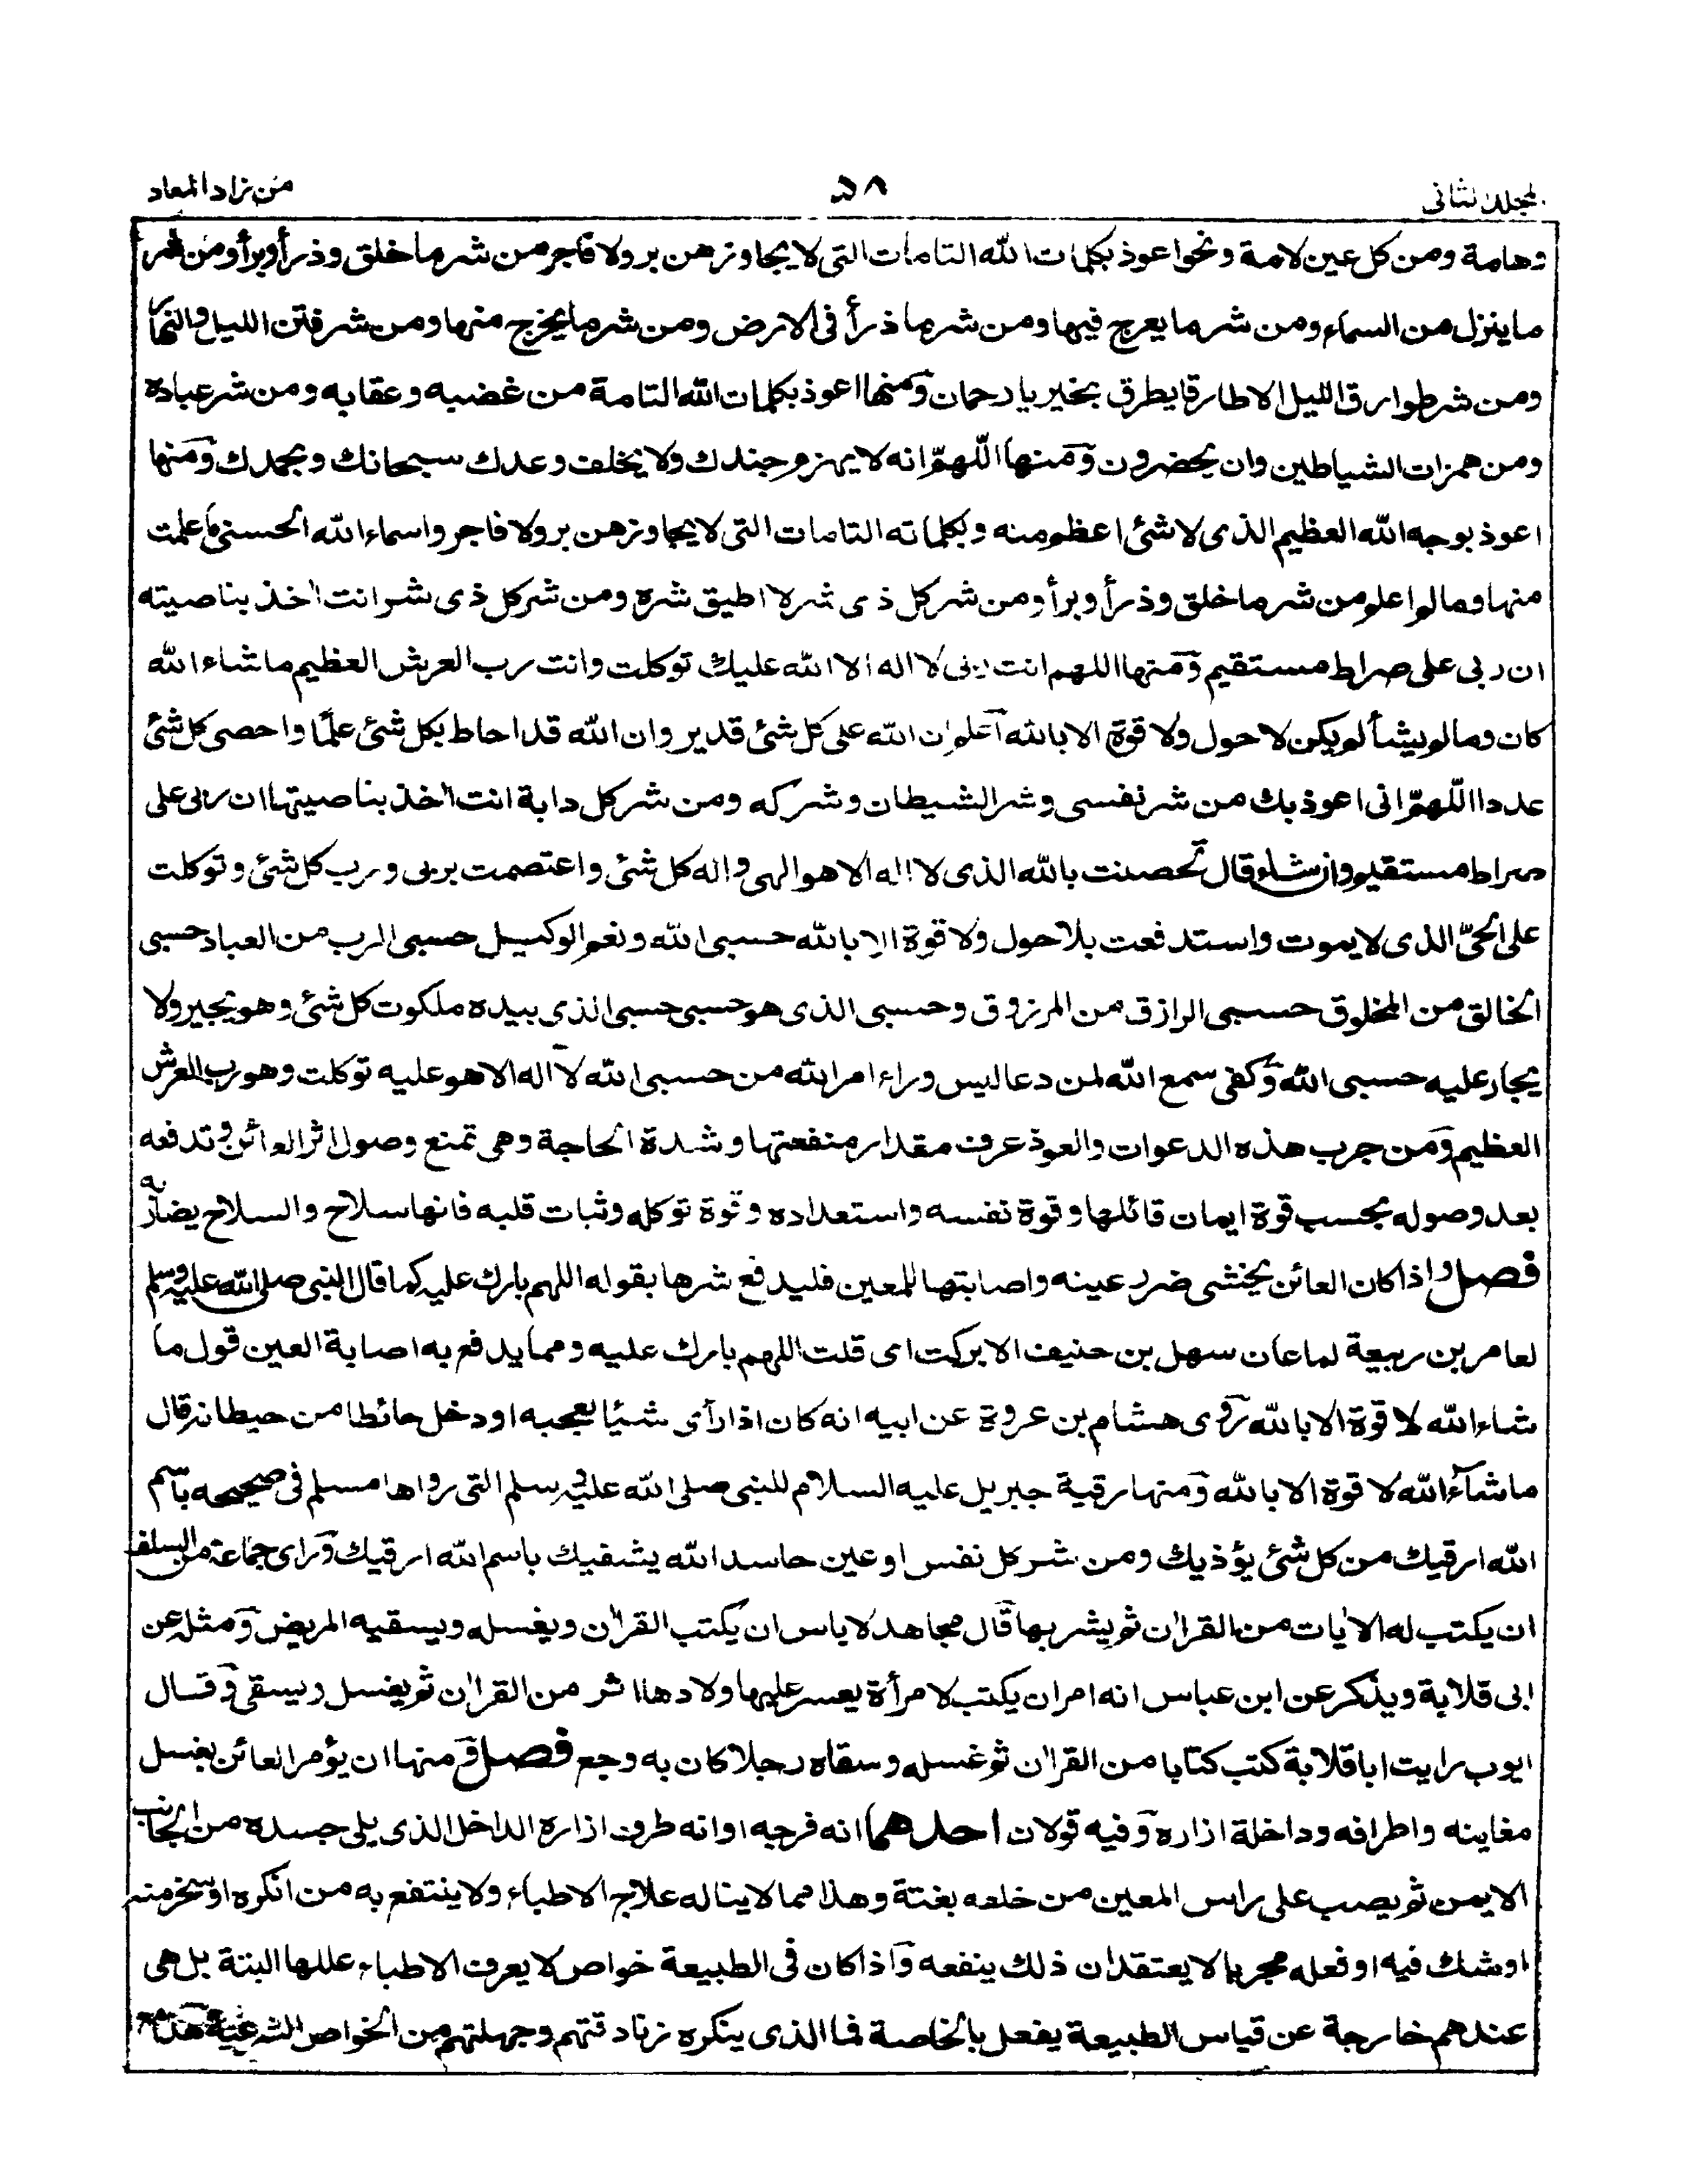 المجلد الثانى
٥٨
من زاد المعاد
وهامة ومن كل عين لامة ونحو اعوذ بكلمات الله التامات التى لا يجاوزهن بر ولا فاجر من شر ما خلق وذرأ وبرأ ومن شر
ما ينزل من السماء ومن شر ما يعرج فيها ومن شر ما ذرأ فى الارض ومن شر ما يخرج منها ومن شر فتن الليل والنهار
ومن شر طوارق الليل الا طارقا يطرق بخير يا رحمان ومنها اعوذ بكلمات الله التامة من غضبه وعقابه ومن شر عباده
ومن همزات الشياطين وان يحضرون ومنها اللهمّ انه لا يهزم جندك ولا يخلف وعدك سبحانك وبحمدك ومنها
اعوذ بوجه الله العظيم الذى لا شئ اعظم منه وبكلماته التامات التى لا يجاوزهن بر ولا فاجر واسماء الله الحسنى ما علمت
منها وما لم اعلم ومن شر ما خلق وذرأ وبرأ ومن شر كل ذى شر لا اطيق شره ومن شر كل ذى شر انت اٰخذ بناصيته
ان ربى على صراط مستقيم ومنها اللهم انت ربى لا اله الا الله عليك توكلت وانت رب العرش العظيم ما شاء الله
كان وما لم يشأ لم يكن لا حول ولا قوة الا بالله اعلم ان الله على كل شئ قدير وان الله قد احاط بكل شئ علمًا واحصى كل شئ
عددا اللهمّ انى اعوذ بك من شر نفسى وشر الشيطان وشركه ومن شر كل دابة انت اٰخذ بناصيتها ان ربى على
صراط مستقيم وان شاء قال تحصنت بالله الذى لا اله الا هو الهى واله كل شئ واعتصمت بربى ورب كل شئ وتوكلت
على الحىّ الذى لا يموت واستدفعت بلا حول ولا قوة الا بالله حسبى الله ونعم الوكيل حسبى الرب من العباد حسبى
الخالق من المخلوق حسبى الرازق من المرزوق وحسبى الذى هو حسبى حسبى الذى بيده ملكوت كل شئ وهو يجير ولا
يجار عليه حسبى الله وكفى سمع الله لمن دعا ليس وراء امر الله من حسبى الله لا اله الا هو عليه توكلت وهو رب العرش
العظيم ومن جرب هذه الدعوات والعوذ عرف مقدار منفعتها وشدة الحاجة وهى تمنع وصول اثر العائن وتدفعه
بعد وصوله بحسب قوة ايمان قائلها وقوة نفسه واستعداده وقوة توكله وثبات قلبه فانها سلاح والسلاح يضاربه
فصل واذا كان العائن يخشى ضرر عينه واصابتها للمعين فليدفع شرها بقوله اللهم بارك عليه كما قال النبى صلى الله عليه وسلم
لعامر بن ربيعة لما عان سهل بن حنيف الا بركت اى قلت اللهم بارك عليه ومما يدفع به اصابة العين قول ما
شاء الله لا قوة الا بالله روى هشام بن عروة عن ابيه انه كان اذا رأى شيئا يعجبه او دخل حائطا من حيطانه قال
ما شآء الله لا قوة الا بالله ومنها رقية جبريل عليه السلام للنبى صلى الله عليه وسلم التى رواها مسلم فى صحيحه باسم
الله ارقيك من كل شئ يؤذيك ومن شر كل نفس او عين حاسد الله يشفيك باسم الله ارقيك وراى جماعة من السلف
ان يكتب له الاٰيات من القراٰن ثم يشربها قال مجاهد لا باس ان يكتب القراٰن ويغسله ويسقيه المريض ومثله عن
ابى قلابة ويذكر عن ابن عباس انه امر ان يكتب لامرأة يعسر عليها ولادها اثر من القراٰن ثم يغسل ويسقى وقال
ايوب رايت ابا قلابة كتب كتابا من القراٰن ثم غسله وسقاه رجلا كان به وجع فصل ومنها ان يؤمر العائن بغسل
مغابنه واطرافه وداخلة ازاره وفيه قولان احدهما انه فرجه او انه طرف ازاره الداخل الذى يلى جسده من الجانب
الايمن ثم يصب على راس المعين من خلفه بغتة وهذا مما لا يناله علاج الاطباء ولا ينتفع به من انكره او سخر منه
او شك فيه او فعله مجربا لا يعتقد ان ذلك ينفعه واذا كان فى الطبيعة خواص لا يعرف الاطباء عللها البتة بل هى
عندهم خارجة عن قياس الطبيعة يفعل بالخاصة فما الذى ينكره زنادقتهم وجهلتهم من الخواص الشرعية هذا مع